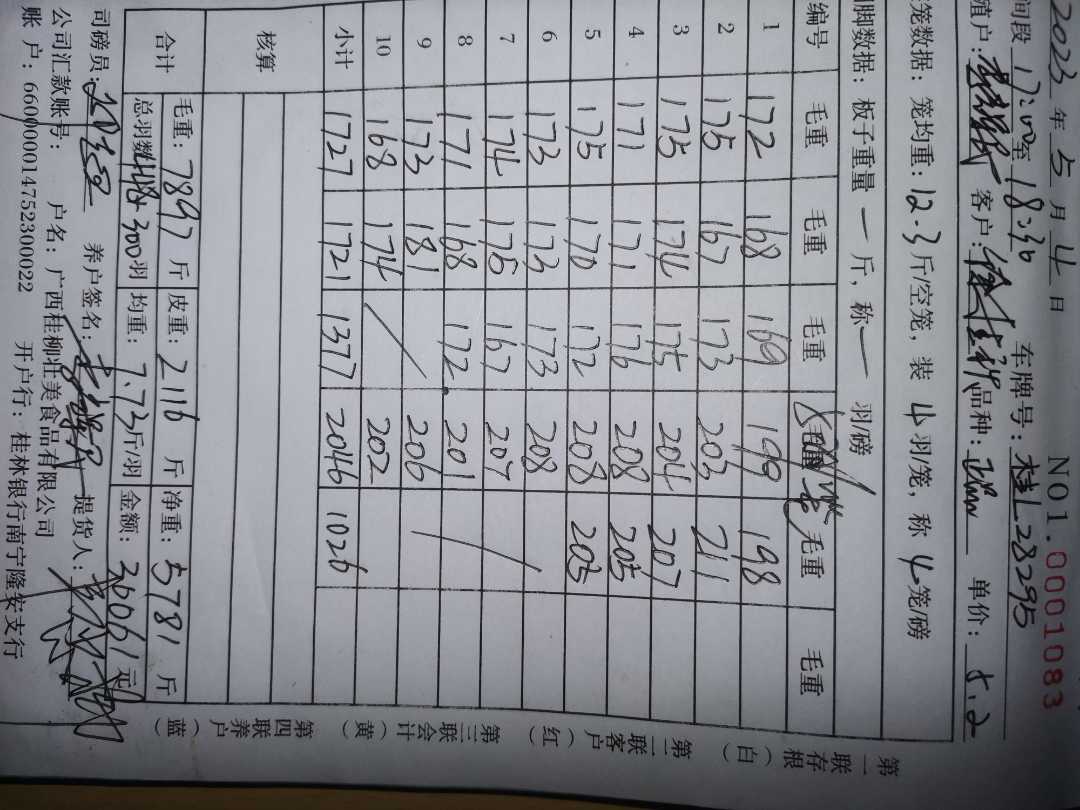 2023年5月4日 NO1.0001083
间段17:00至18:36 车牌号:桂L28295
殖户: 客户: 品种: 单价:5.2
笼数据: 笼均重:12.3斤/空笼, 装4羽/笼, 称4笼/磅
脚数据: 板子重量一斤, 称一羽/磅
编号 毛重 毛重 毛重 毛重 毛重
1 172 168 169 199 198
2 175 167 173 203 211
3 175 174 175 204 207
4 171 171 176 208 205
5 175 170 172 208 205
6 173 173 173 208
7 174 175 167 207
8 171 168 172 201
9 173 181 206
10 168 174 202
小计 1727 1721 1377 2046 1026
核算
合计 毛重:7897斤 皮重:2116斤 净重:5781斤
总羽数: 300羽 均重:7.73斤/羽 金额:30061元
司磅员: 养户签名: 提货人:
公司汇款账号: 户名:广西桂柳壮美食品有限公司
账户:660000014752300022 开户行:桂林银行南宁隆安支行
第一联存根(白)
第二联客户(红)
第三联会计(黄)
第四联养户(蓝)